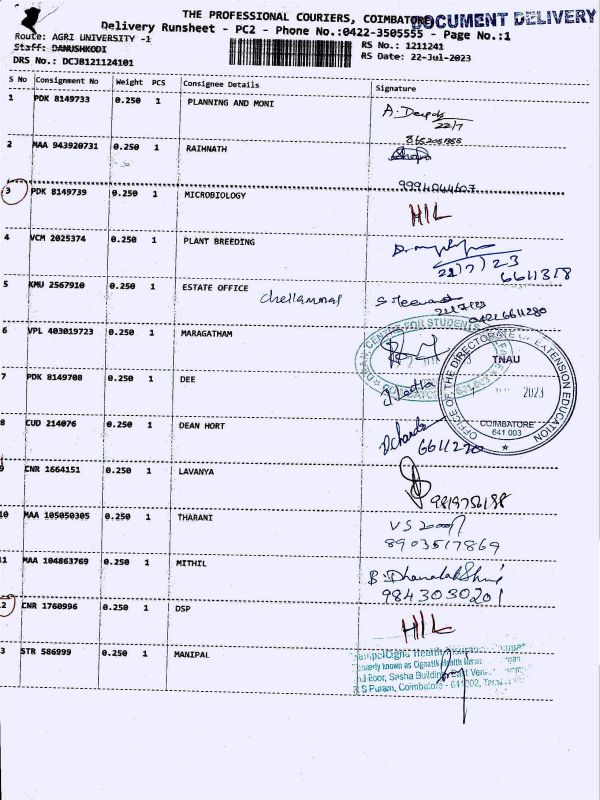 THE PROFESSIONAL COURIERS, COIMBATORE
DOCUMENT DELIVERY
Delivery Runsheet - PC2 - Phone No.:0422-3505555 - Page No.:1
Route: AGRI UNIVERSITY -1
RS No.: 1211241
Staff: DANUSHKODI
RS Date: 22-Jul-2023
DRS No.: DCJB121124101
S No Consignment No Weight PCS Consignee Details Signature
1 PDK 8149733 0.250 1 PLANNING AND MONI
22/7
2 MAA 943920731 0.250 1 RAIHNATH
3 PDK 8149739 0.250 1 MICROBIOLOGY
9994844607
H/L
4 VCM 2025374 0.250 1 PLANT BREEDING
22/7/23
6611378
5 KMU 2567910 0.250 1 ESTATE OFFICE
Chellammal
0422 6611280
6 VPL 403019723 0.250 1 MARAGATHAM
FOR STUDENTS
OFFICE OF THE DIRECTORATE OF EXTENSION EDUCATION
TNAU
2023
COIMBATORE
641 003
7 PDK 8149708 0.250 1 DEE
8 CUD 214076 0.250 1 DEAN HORT
6611270
9 CNR 1664151 0.250 1 LAVANYA
10 MAA 105050305 0.250 1 THARANI
8903517869
11 MAA 104863769 0.250 1 MITHIL
9843030201
12 CNR 1760996 0.250 1 DSP
H/L
3 STR 586999 0.250 1 MANIPAL
Health Insurance
known as Cignattk Health
Floor, Sasha Building, East
R S Puram, Coimbatore - 641002,